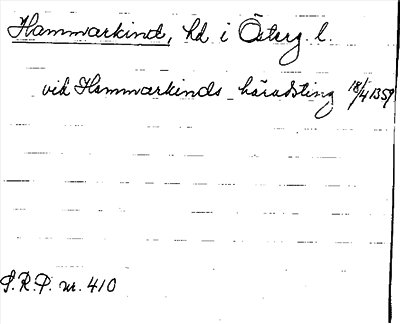 Hammarkind, hd i Österg. l.
vid Hammarkinds häradsting 18/4 1359
S.R.P. nr. 410